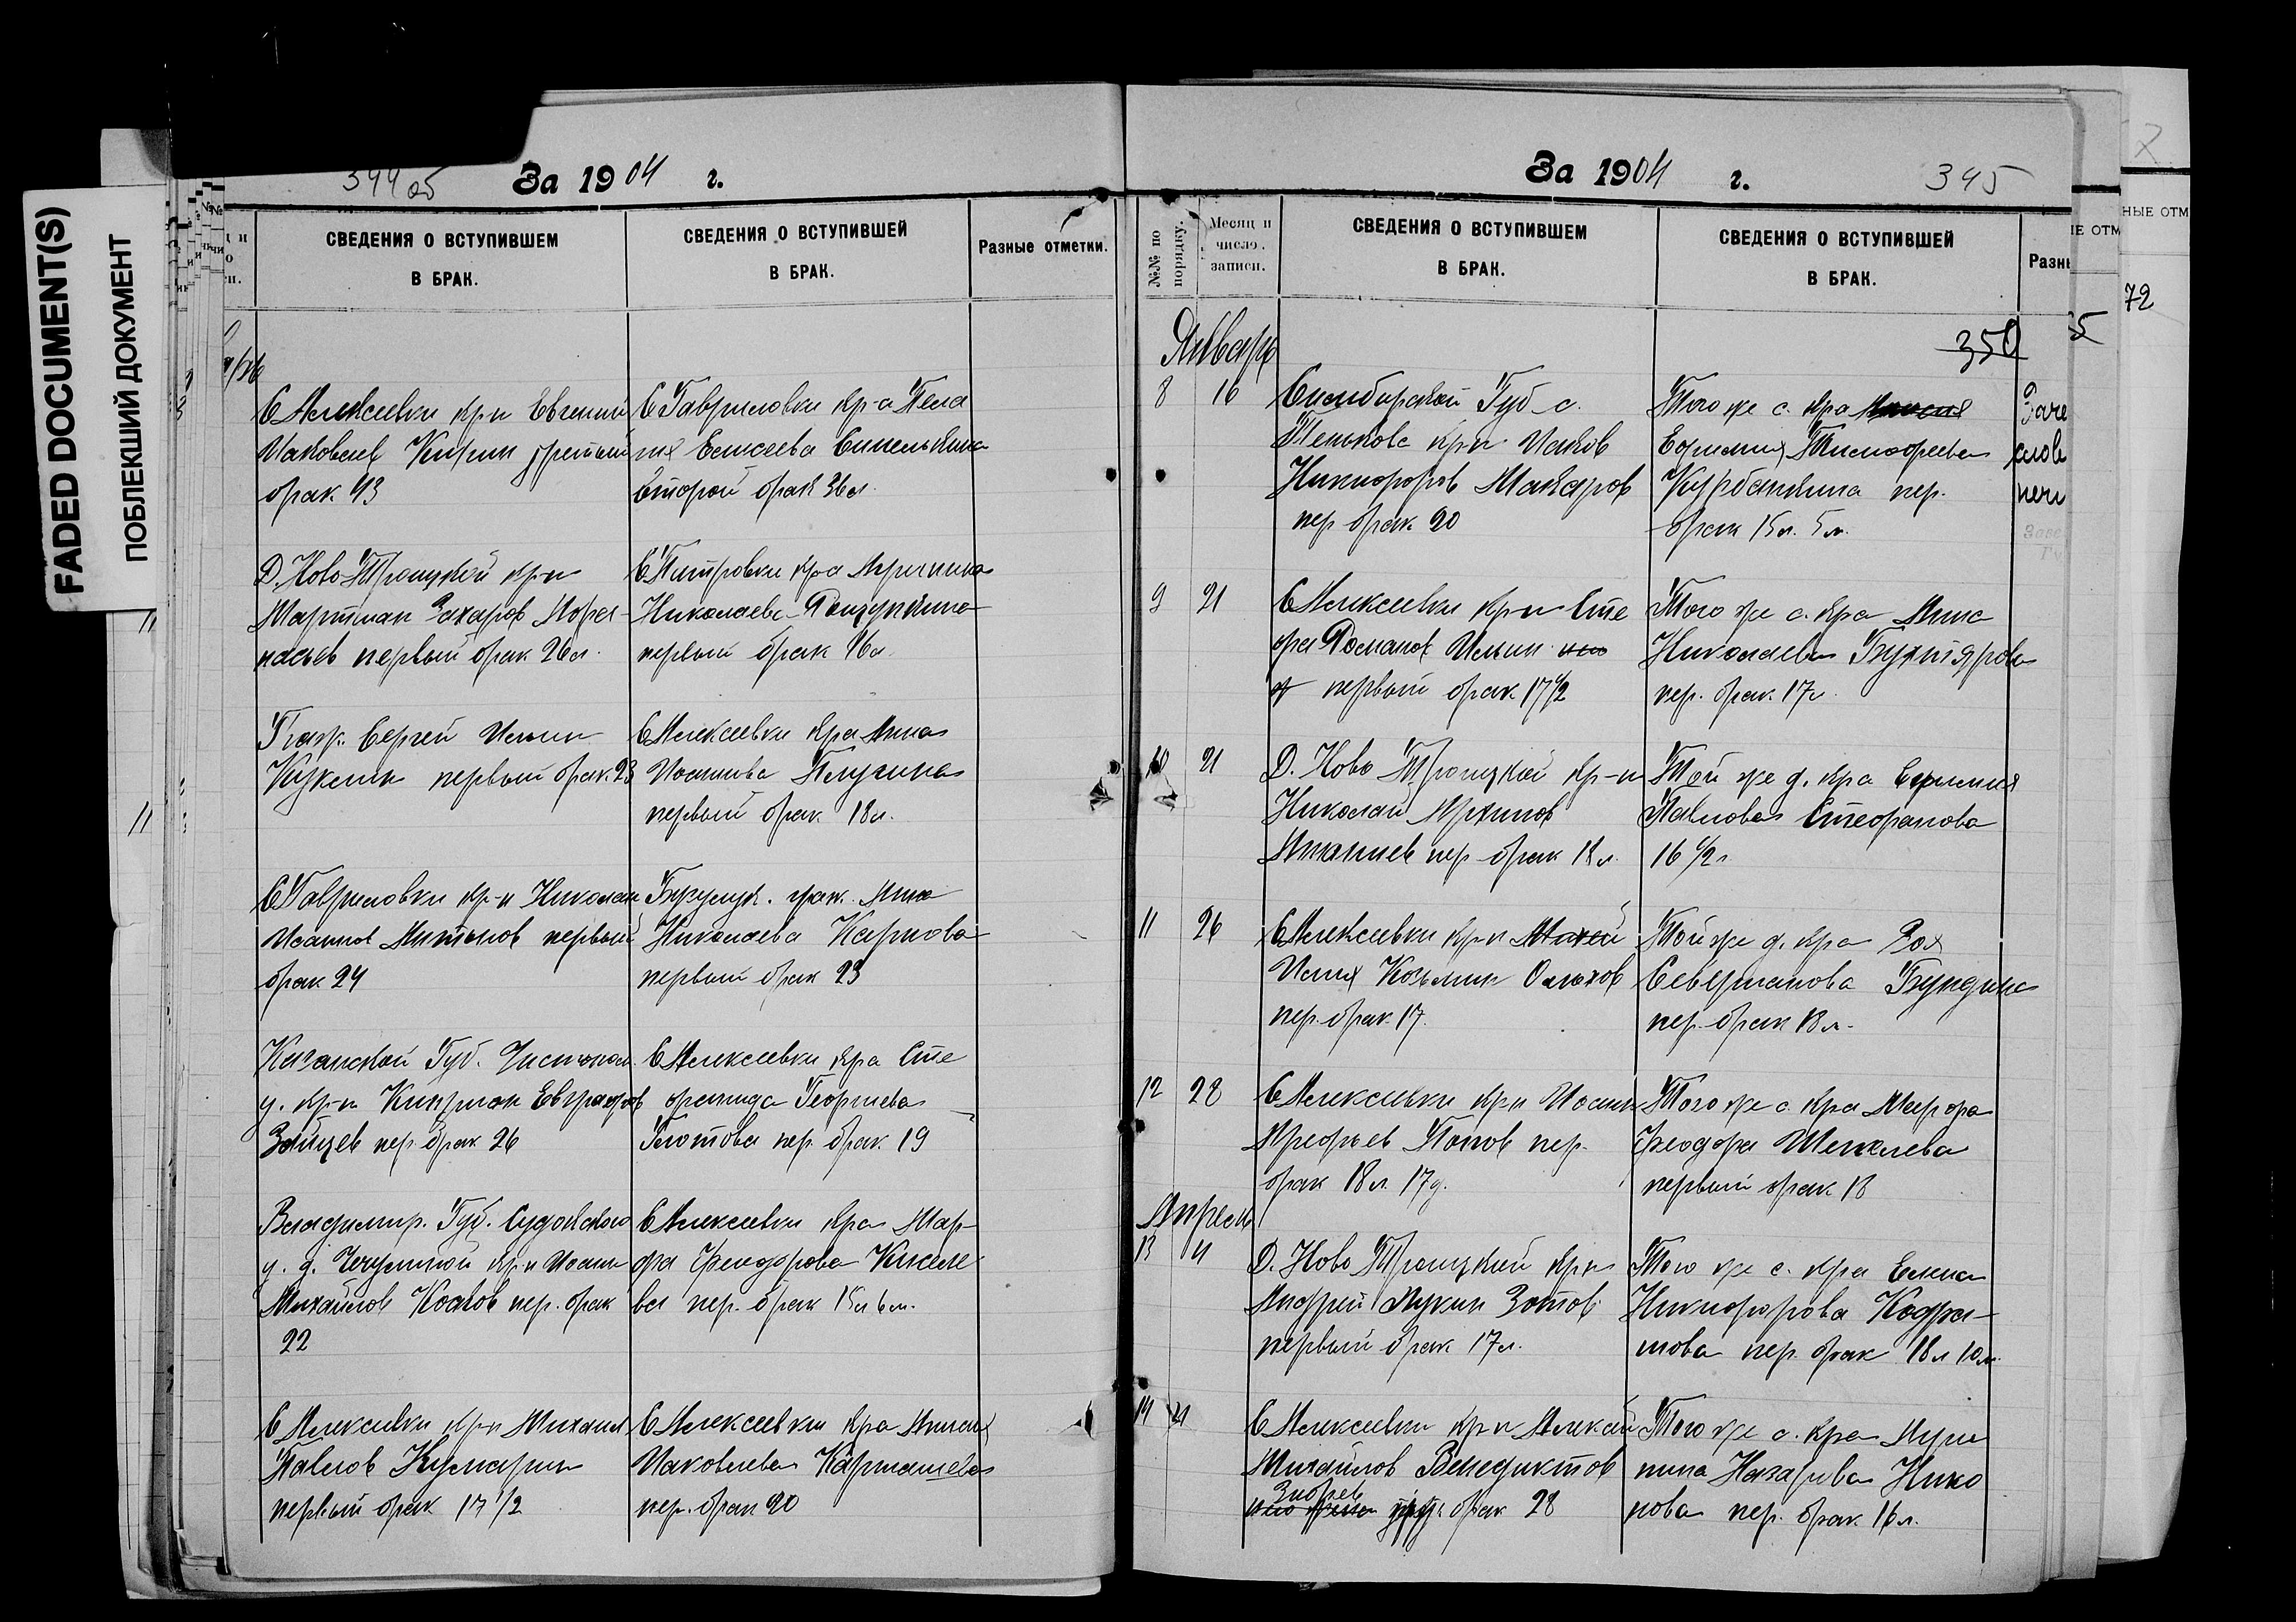 FADED DOCUMENT(S)
ПОБЛЕКШИЙ ДОКУМЕНТ
344 об
За 1904 г.
СВЕДЕНИЯ О ВСТУПИВШЕМ
В БРАК.
СВЕДЕНИЯ О ВСТУПИВШЕЙ
В БРАК.
Разные отметки.
С Алексеевки кр-н Евгений
Иаковлев третий
брак 43
С Гавриловки кр-а Пела
гия Елисеева Синельника
второй брак 36 л.
Д. Ново Троицкой кр-н
Мартиан Захаров Афа-
насьев первый брак 26 л.
С Петровки кр-а Агрипина
Николаева
первый брак 16 л
Гражд. Сергей Ильин
Куклин первый брак 23
С Алексеевки кр-а Анна
Иоаннова Плугина
первый брак 18 л.
С Гавриловки кр-н Николай
Иоаннов Антонов первый
брак 24
Бузулук. граж. Анна
Николаева Карпова
первый брак 23
Казанской Губ. Чистопол.
у. кр-н Киприан Евграфов
Зайцев пер. брак 26
С Алексеевки кр-а Сте
фанида Георгиева
Глотова пер. брак 19
Владимир. Губ. Судогского
у. д. кр-н Иоанн
Михайлов Козлов пер. брак
22
С Алексеевки кр-а Мар-
фа Феодорова Киселе
ва пер. брак 15 л 6 м.
С Алексеевки кр-н Михаил
Павлов Кумарин
первый брак 17 1/2
С Алексеевки кр-а
Иаковлева Кармашева
пер. брак 20
За 1904 г.
345
№№ по порядку.
Месяц и число записи.
СВЕДЕНИЯ О ВСТУПИВШЕМ
В БРАК.
СВЕДЕНИЯ О ВСТУПИВШЕЙ
В БРАК.
Разны
350
Январь
8 16
Симбирской Губ. с.
Пенькова кр-н Иаков
Никифоров Макаров
пер брак 20
Того же с. кр-а
Ефимия Тимофеева
Курбанкина пер.
брак 15 л. 5 м.
9 21
С Алексеевки кр-н Сте
фан Романов Ильин
первый брак 17 1/2
Того же с. кр-а Анна
Николаева Бухтярова
пер. брак 17 л.
10 21
Д. Ново Троицкой кр-н
Николай Архипов
Ананиев пер брак 18 л.
Той же д. кр-а Евфимия
Павлова Стефанова
16 1/2 л
11 26
С Алексеевки кр-н
Илия Козьмин Ольхов
пер. брак 17.
Той же д. кр-а Зоя
Севериanова Бундина
пер. брак 18 л.
12 28
С Алексеевки кр-н Иоанн
Арефьев Попов пер.
брак 18 л.
Того же с. кр-а Марфа
Феодора Шекалева
первый брак 18
Апрель
13 11
Д. Ново Троицкой кр-н
Андрей Лукин Зотов
первый брак 17 л.
Того же с. кр-а Елена
Никифорова Кодра-
това пер. брак 18 л 10 м.
14 21
С Алексеевки кр-н Алексей
Михайлов Венедиктов
брак 28
Того же с. кр-а Агри
пина Назарова Нико
нова пер. брак 16 л.
НЫЕ ОТМ
72